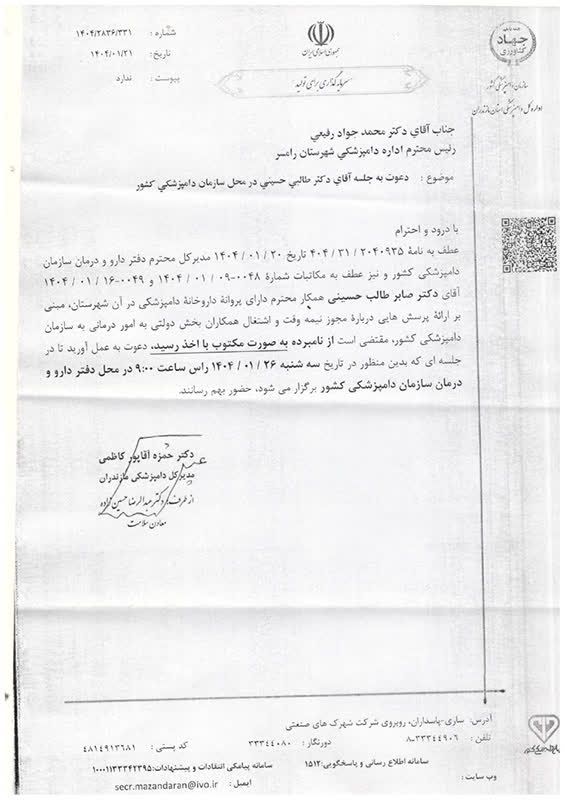 شماره : ۱۴۰۴/۲۸۳۶/۳۳۱
تاریخ: ۱۴۰۴/۰۱/۲۱
پیوست : ندارد
جمهوری اسلامی ایران
سرمایه گذاری برای تولید
جهاد
کشاورزی
سازمان دامپزشکی کشور
اداره کل دامپزشکی استان مازندران
جناب آقای دکتر محمد جواد رفیعی
رئیس محترم اداره دامپزشکی شهرستان رامسر
موضوع : دعوت به جلسه آقای دکتر طالبی حسینی در محل سازمان دامپزشکی کشور
با درود و احترام
عطف به نامهٔ ۲۰۴۰۹۳۵ / ۳۱ / ۴۰۴ تاریخ ۲۰ / ۰۱ / ۱۴۰۴ مدیرکل محترم دفتر دارو و درمان سازمان
دامپزشکی کشور و نیز عطف به مکاتبات شمارهٔ ۰۰۴۸-۰۹ / ۰۱ / ۱۴۰۴ و ۰۰۴۹-۱۶ / ۰۱ / ۱۴۰۴
آقای دکتر صابر طالب حسینی همکار محترم دارای پروانهٔ داروخانهٔ دامپزشکی در آن شهرستان، مبنی
بر ارائهٔ پرسش هایی دربارهٔ مجوز نیمه وقت و اشتغال همکاران بخش دولتی به امور درمانی به سازمان
دامپزشکی کشور، مقتضی است از نامبرده به صورت مکتوب با اخذ رسید، دعوت به عمل آورید تا در
جلسه ای که بدین منظور در تاریخ سه شنبه ۲۶ / ۰۱ / ۱۴۰۴ راس ساعت ۹:۰۰ در محل دفتر دارو و
درمان سازمان دامپزشکی کشور برگزار می شود، حضور بهم رسانند.
دکتر حمزه آقاپور کاظمی
مدیرکل دامپزشکی مازندران
از طرف، دکتر عبدالرضا حسین زاده
معاون سلامت
آدرس: ساری-پاسداران، روبروی شرکت شهرک های صنعتی
تلفن : ۸-۳۳۳۴۴۹۰۶ دورنگار: ۳۳۳۴۴۰۸۰ کد پستی : ۴۸۱۴۹۱۳۶۸۱
سامانه اطلاع رسانی و پاسخگویی: ۱۵۱۲ سامانه پیامکی انتقادات و پیشنهادات: ۱۰۰۰۱۱۳۳۳۴۲۳۹۵
وب سایت : ایمیل : secr.mazandaran@ivo.ir